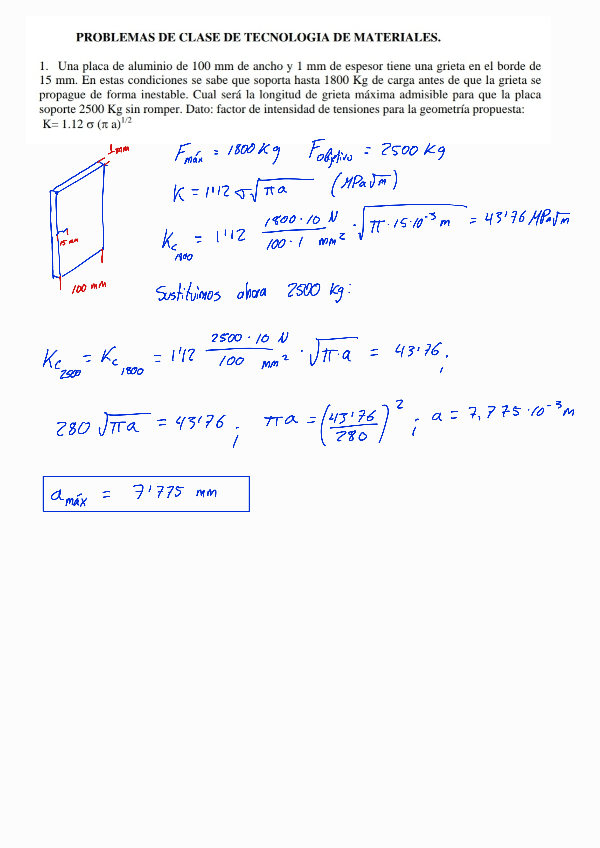 PROBLEMAS DE CLASE DE TECNOLOGIA DE MATERIALES.
1. Una placa de aluminio de 100 mm de ancho y 1 mm de espesor tiene una grieta en el borde de
15 mm. En estas condiciones se sabe que soporta hasta 1800 Kg de carga antes de que la grieta se
propague de forma inestable. Cual será la longitud de grieta máxima admisible para que la placa
soporte 2500 Kg sin romper. Dato: factor de intensidad de tensiones para la geometría propuesta:
K= 1.12 σ (π a)^1/2
1mm
15 mm
100 mm
F máx = 1800 Kg F objetivo = 2500 Kg
K = 1'12 σ √π a (MPa√m)
Kc 1800 = 1'12 1800·10 N / 100·1 mm² · √π·15·10^-3 m = 43'76 MPa√m
Sustituimos ahora 2500 Kg:
Kc 2500 = Kc 1800 = 1'12 2500·10 N / 100 mm² · √π·a = 43'76 ;
280 √πa = 43'76 ; πa = (43'76 / 280)² ; a = 7,775·10^-3 m
a máx = 7'775 mm